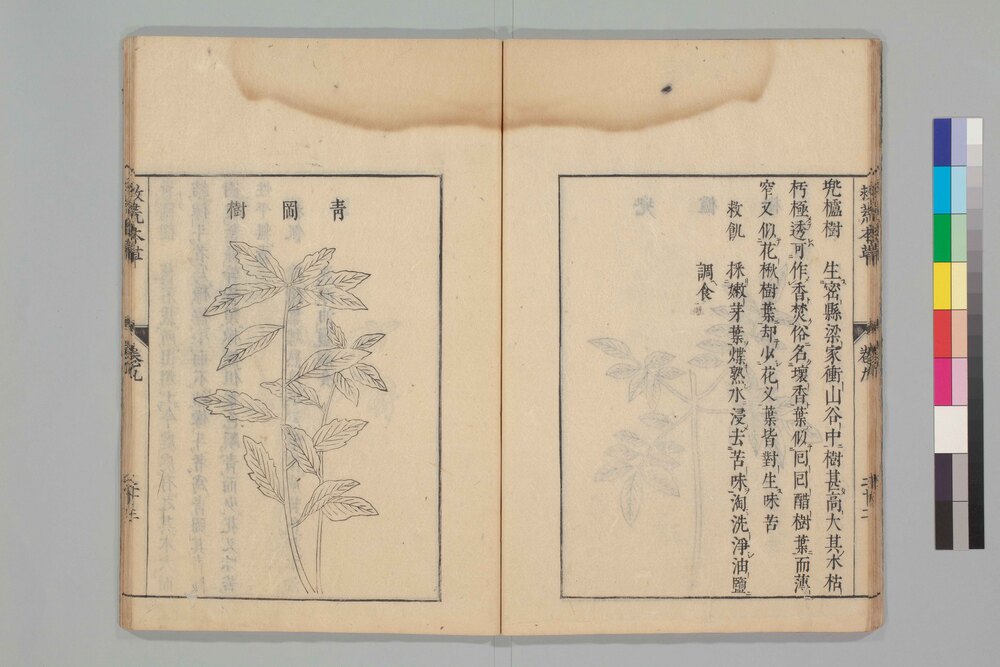 兠櫨樹　生密縣梁家衝山谷中樹甚高大其木枯
朽極透可作香焚俗名壞香葉似回回醋樹葉而薄
窄又似花楸樹葉却少花叉葉皆對生味苦
救飢　採嫩芽葉煠熟水浸去苦味淘洗淨油鹽
調食
救荒本草
卷九
二十二
青岡樹
救荒本草
卷九